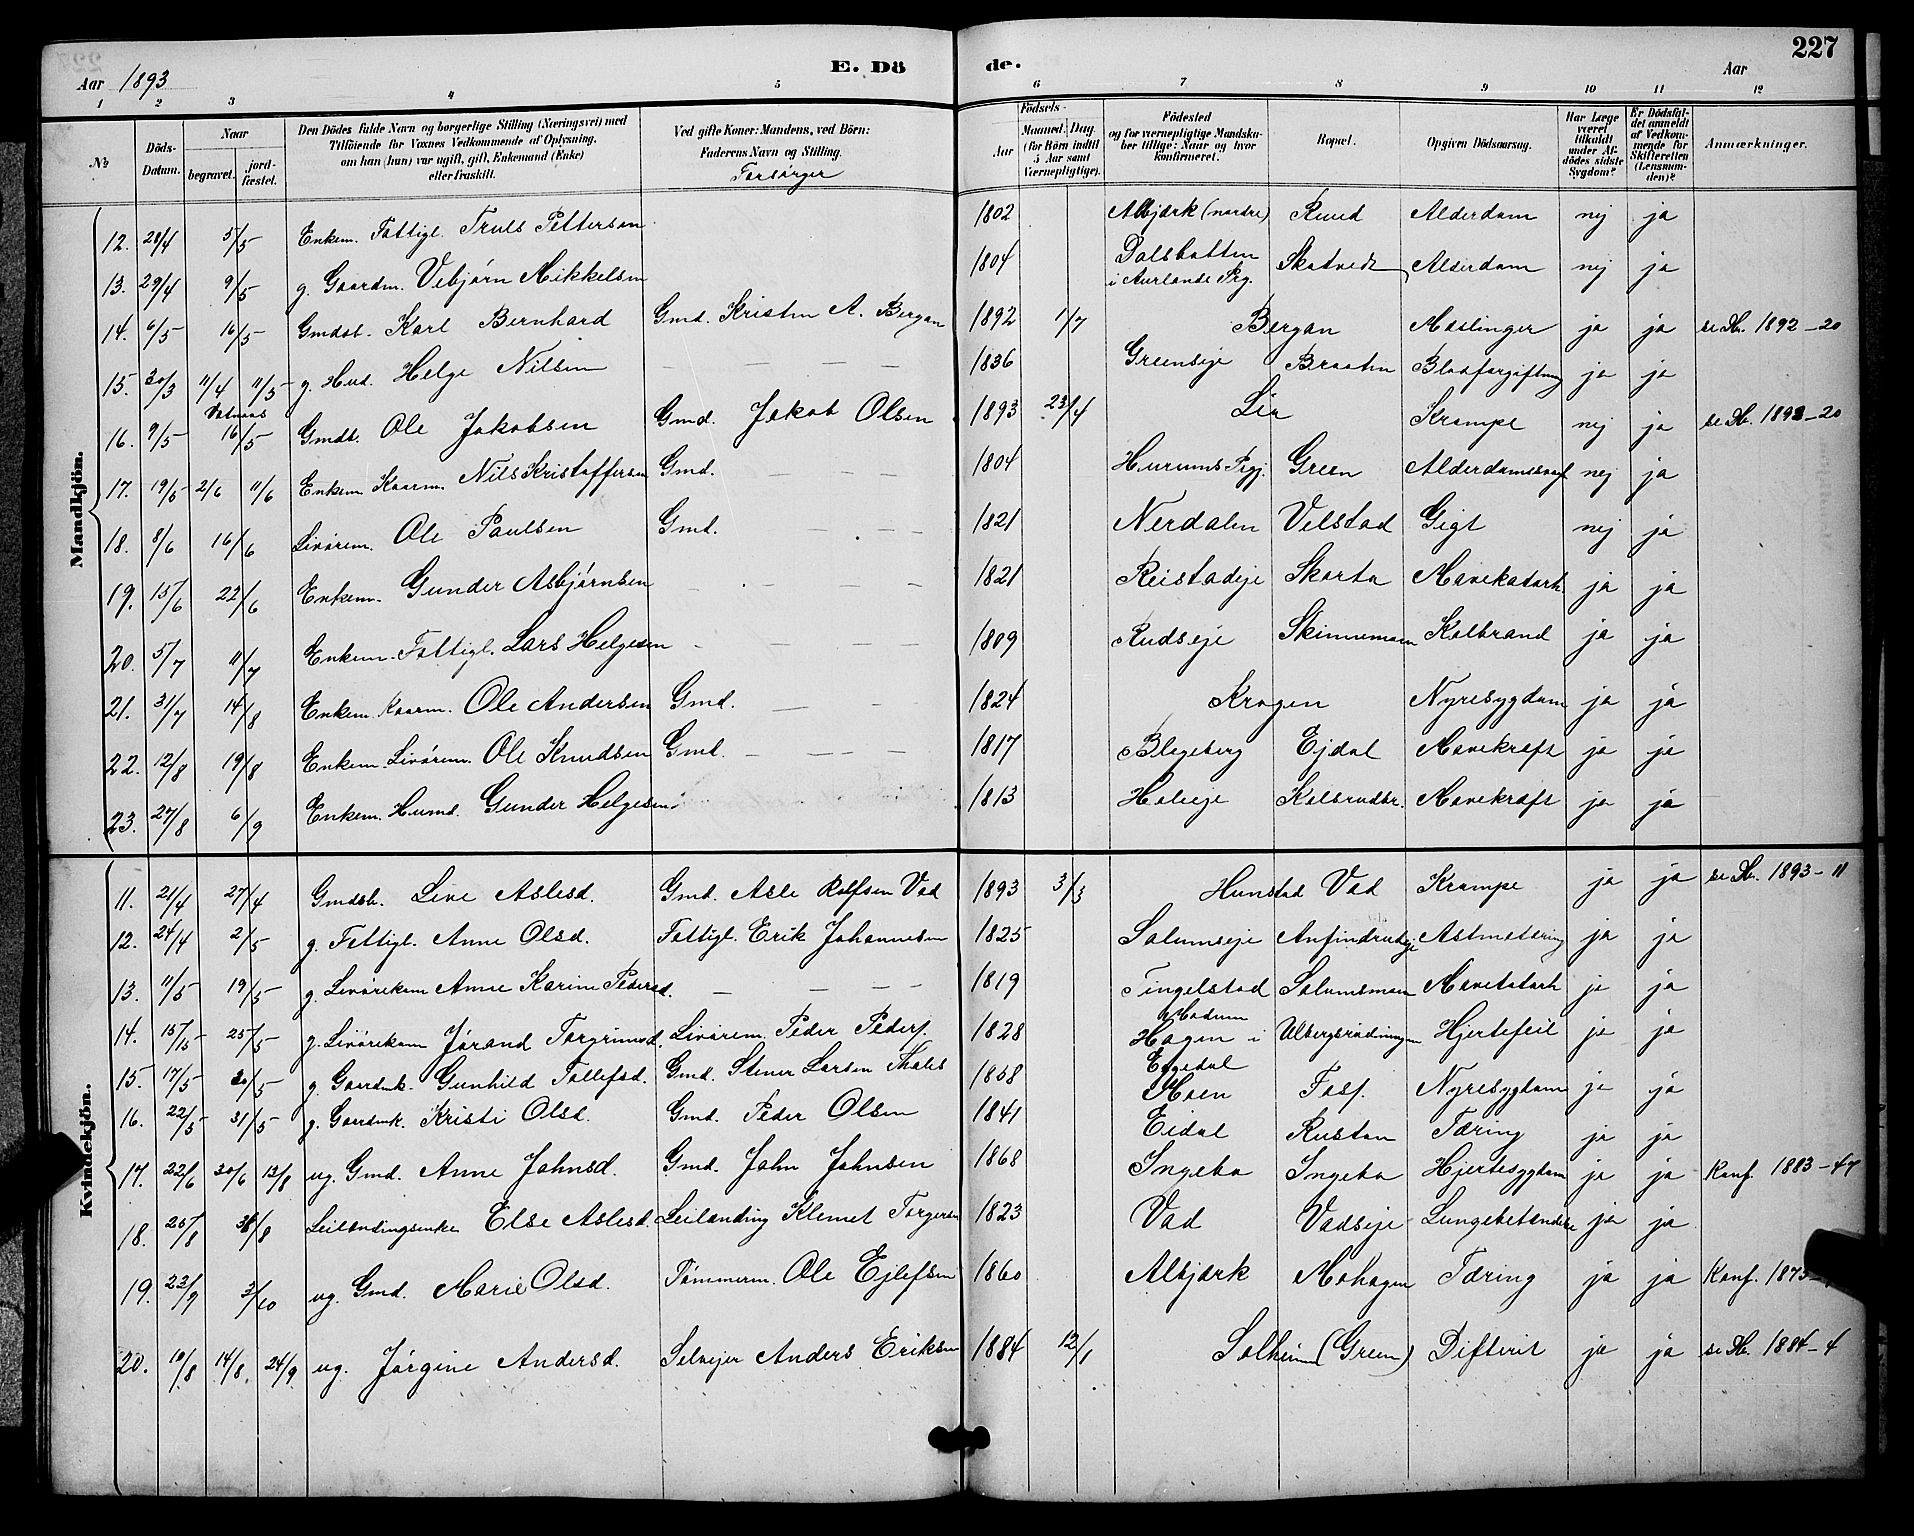 Aar 1893
E. Dö
de.
Aar
227
1 2 3 4 5 6 7 8 9 10 11 12
No
Döds-Datum.
Naar
begravet.
jord-fæstet.
Den Dödes fulde Navn og borgerlige Stilling (Næringsvei) med
Tilföiende for Voxnes Vedkommende af Oplysning,
om han (hun) var ugift, gift, Enkemand (Enke)
eller fraskilt.
Ved gifte Koner: Mandens, ved Börn:
Faderens Navn og Stilling.
Forsørger
Födsels-
Aar
Maaned. Dag.
(for Börn indtil 5 Aar samt Værnepligtige).
Födested
og for værnepligtige Mandska-
ber tillige: Naar og hvor
konfirmeret.
Bopæl.
Opgiven Dödsaarsag.
Har Læge været tilkaldt under Af-dödes sidste Sygdom?
Er Dödsfal-det anmeldt af Vedkom-mende for Skifteretten (Lensmanden)?
Anmærkninger.
Mandkjön.
12. 28/4 5/5 Enkem. Fattigl. Truls Pettersen 1802 Albjærk (nordre) Ruud Alderdom nej ja
13. 29/4 9/5 g. Gaardm. Vebjørn Mikkelsen 1804 Dalsbotten i Aurlands Prg. Skatvedt Alderdom nej ja
14. 6/5 16/5 Gmdsb. Karl Bernhard Gmd. Kristen A. Bergan 1892 1/7 Bergan Mæslinger ja ja se Db. 1892-20
15. 30/3 11/4 11/5 g. Hud. Helge Nilsen — — — 1836 Greenseje Braaten Blodforgiftning ja ja
16. 9/5 16/5 Gmdb. Ole Jakobsen Gmd. Jakob Olsen 1893 23/4 Lia Krampe nej ja se Db. 1893-20
17. 19/5 2/6 11/6 Enkem. Kaarm. Nils Kristoffersen Gmd. 1804 Hurums Prgj. Green Alderdomssvagh nej ja
18. 8/6 16/6 Livørem. Ole Paulsen Gmd. — — 1821 Nerdalen Velstad Gigt nej ja
19. 15/6 22/6 Enkem. Gunder Asbjørnsen — — — 1821 Reistadeje Skarta Mavekatarh. ja ja
20. 5/7 11/7 Enkem. Fattigl. Lars Helgesen — — — 1809 Rudseje Skinnemoen Kolbrand ja ja
21. 31/7 14/8 Enkem. Kaarm. Ole Andersen Gmd. — — 1824 Krogen Nyresygdom ja ja
22. 12/8 19/8 Enkem. Livørem. Ole Knudsen Gmd. — — 1817 Blegeberg Ejdal Mavekræft ja ja
23. 27/8 6/9 Enkem. Husmd. Gunder Helgesen 1813 Holeeje Kolsrudbr. Mavekræft ja ja
Kvindekjön.
11. 21/4 27/4 Gmdsb. Live Aslesd. Gmd. Asle Rolfsen Vad 1893 3/3 Hunstad Vad Krampe ja ja se Db. 1893-11
12. 24/4 2/5 g. Fattigl. Anne Olsd. Fattigl. Erik Johannesen 1825 Solumseje Anfindrudeje Astmatæring ja ja
13. 11/5 19/5 g. Livørekone Anne Karine Pedersd. — — — 1819 Tingelstad Solumsmoen Mavekatarh ja ja
14. 15/15 25/5 g. Livørekone Jørand Torgrimsd. Livørem. Peder Peders. 1828 Hagen i Modum Ulbergsrudningen Hjertefeil ja ja
15. 17/5 30/5 g. Gaardmk. Gunhild Tollefsd. Gmd. Stener Larsen Tholes 1858 Eggedal Moen Foss. Nyresygdom ja ja
16. 22/5 31/5 g. Gaardmk. Kristi Olsd. Gmd. Peder Olsen 1841 Eidal Rustan Tæring ja ja
17. 22/6 30/6 13/8 ug. Gmd. Anne Johnsd. Gmd. John Johnsen 1868 Ingebo Ingebo Hjertesygdom ja ja Konf. 1883-47
18. 25/8 31/8 Leilændingsenke Else Aslesd. Leilænding Klemet Torgersen 1823 Vad Vadseje Lungebetændelse ja ja
19. 23/9 3/10 ug. Gmd. Marie Olsd. Tømmerm. Ole Ejlefsen 1860 Albjærk Mohagen Tæring ja ja Konf. 1875-
20. 10/8 14/8. 24/9 ug. Jørgine Andersd. Selvejer Anders Eriksen 1884 12/1 Solheim (Green) Difterit ja ja se Db. 1884-4